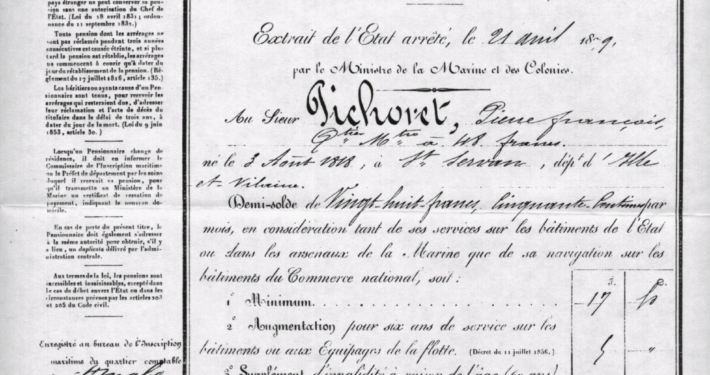 pays étranger ne peut conserver sa pen-
sion sans une autorisation du Chef de
l'État. (Loi du 18 avril 1831; ordon-
nance du 11 septembre 1832.)
Toute pension dont les arrérages ne
sont pas réclamés pendant trois années
consécutives est censée éteinte, et si plus
tard la pension est rétablie, les arrérages
ne commencent à courir qu'à dater du
jour du rétablissement de la pension. (Rè-
glement du 17 juillet 1816, article 135.)
Les héritiers ou ayants cause d'un Pen-
sionnaire sont tenus, pour recevoir les
arrérages qui resteraient dus, d'adresser
leur réclamation et l'acte de décès du
titulaire dans le délai de trois ans, à
dater du jour de la mort. (Loi du 9 juin
1853, article 30.)
Lorsqu'un Pensionnaire change de
résidence, il doit en informer le
Commissaire de l'Inscription maritime
ou le Préfet du département par les soins
duquel il recevait sa pension, pour
qu'il transmette au Ministère de la
Marine un certificat de cessation de
payement, indiquant la nouveau do-
micile.
En cas de perte du présent titre, le
Pensionnaire doit également s'adresser
à la même autorité pour obtenir, s'il y
a lieu, un duplicata délivré par l'admi-
nistration centrale.
Aux termes de la loi, les pensions sont
incessibles et insaisissables, excepté dans
le cas de débet envers l'État ou dans les
circonstances prévues par les articles 203
et 205 du Code civil.
Enregistré au bureau de l'Inscription
maritime du quartier comptable
Extrait de l'État arrêté, le 21 avril 1879,
par le Ministre de la Marine et des Colonies.
Au Sieur Pichoret, Pierre François,
Qtier Mtre à 48 francs.
né le 3 Août 1818, à St Servan, dépt d'Ille
et Vilaine.
Demi-solde de Vingt huit francs, Cinquante Centimes par
mois, en considération tant de ses services sur les bâtiments de l'État
ou dans les arsenaux de la Marine que de sa navigation sur les
bâtiments du Commerce national, soit :
1° Minimum. 17
2° Augmentation pour six ans de service sur les
bâtiments ou aux Équipages de la flotte. (Décret du 11 juillet 1856.) 5 "
3° Supplément d'invalidité à raison de l'âge (60 ans)